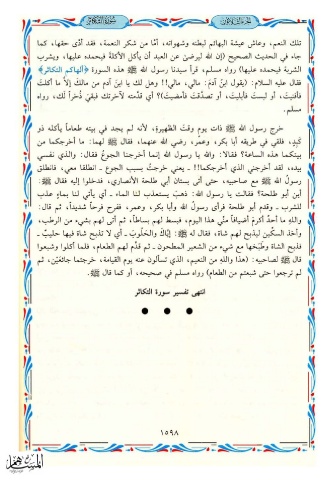 سورة التكاثر
الجزء الثلاثون
تلك النعم، وعاش عيشة البهائم لبطنه وشهواته، أمّا من شكر النعمة، فقد أدّى حقها، كما
جاء في الحديث الصحيح (إن الله ليرضىٰ عن العبد أن يأكل الأكلة فيحمده عليها، ويشرب
الشربة فيحمده عليها) رواه مسلم، قرأ سيدنا رسول الله ﷺ هذه السورة ﴿ألهاكم التكاثر﴾
فقال عليه السلام: (يقول ابنُ آدمَ: مالي، مالي!! وهل لك يا ابنَ آدم من مالك إلّا ما أكلتَ
فأفنيتَ، أو لبستَ فأبليتَ، أو تصدّقتَ فأمضيتَ)؟ أي قدّمته لآخرتك فبقيَ ذُخراً لك، رواه
مسلم.
خرج رسول الله ﷺ ذات يومٍ وقتَ الظهيرة، لأنه لم يجد في بيته طعاماً يأكله ذو
كبدٍ، فلقي في طريقه أبا بكر، وعمر، رضي الله عنهما، فقال لهما: ما أخرجكما من
بيتكما هذه الساعة؟ فقالا: والله يا رسول الله إنما أخرجنا الجوعُ فقال: والذي نفسي
بيده، لقد أخرجني الذي أخرجكما!! - يعني خرجتُ بسبب الجوع - انطلقا معي، فانطلق
رسولُ الله ﷺ مع صاحبيه، حتى أتى بستان أبي طلحة الأنصاري، فدخلوا إليه فقال:
أين أبو طلحة؟ فقالت يا رسول الله: ذهبَ يستعذب لنا الماء ـ أي يأتي لنا بماءٍ عذب
للشرب ـ وقدم أبو طلحة فرأى رسولَ الله ﷺ وأبا بكر، وعمر، ففرح فرحاً شديداً، ثم قال:
والله ما أحدٌ أكرمَ أضيافاً منّي هذا اليوم، فبسط لهم بساطاً، ثم أتى لهم بشيء من الرطب،
وأخذ السكّين ليذبح لهم شاة، فقال له ﷺ: إيّاك والحَلُوبَ ـ أي لا تذبح شاة فيها حليبٌ ـ
فذبح الشاة وطبَخها مع شيء من الشعير المطحون، ثم قدَّم لهم الطعام، فلما أكلوا وشبعوا
قال ﷺ لصاحبيه: (هذا والله من النعيم، الذي تسألون عنه يوم القيامة، خرجتما جائعَيْن، ثم
لم ترجعوا حتى شبعتم من الطعام) رواه مسلم في صحيحه، أو كما قال ﷺ.
انتهى تفسير سورة التكاثر
١٥٩٨